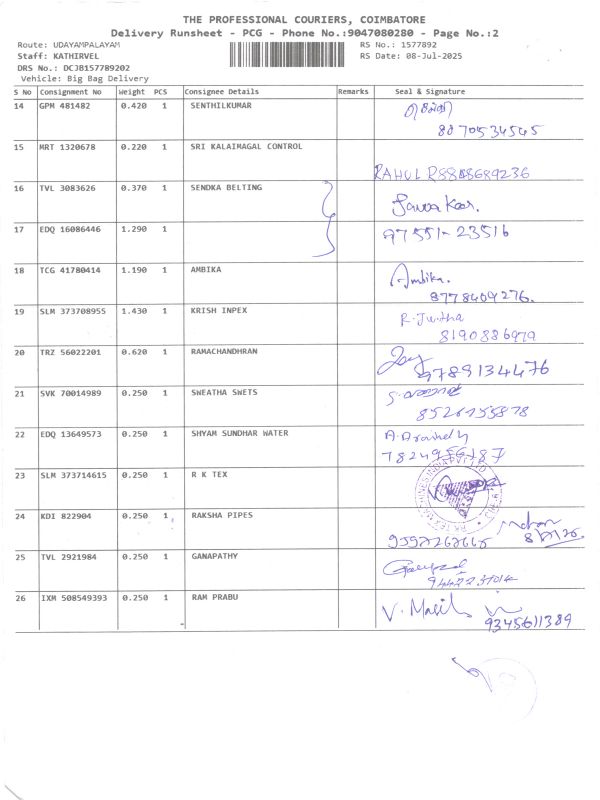 THE PROFESSIONAL COURIERS, COIMBATORE
Delivery Runsheet - PCG - Phone No.:9047080280 - Page No.:2
Route: UDAYAMPALAYAM RS No.: 1577892
Staff: KATHIRVEL RS Date: 08-Jul-2025
DRS No.: DCJB157789202
Vehicle: Big Bag Delivery
S No Consignment No Weight PCS Consignee Details Remarks Seal & Signature
14 GPM 481482 0.420 1 SENTHILKUMAR
8870534545
15 MRT 1320678 0.220 1 SRI KALAIMAGAL CONTROL
RAHUL R
16 TVL 3083626 0.370 1 SENDKA BELTING
17 EDQ 16086446 1.290 1 97551-23516
18 TCG 41780414 1.190 1 AMBIKA Ambika.
8778409276.
19 SLM 373708955 1.430 1 KRISH INPEX
8190886979
20 TRZ 56022201 0.620 1 RAMACHANDHRAN
9789134476
21 SVK 70014989 0.250 1 SWEATHA SWETS
22 EDQ 13649573 0.250 1 SHYAM SUNDHAR WATER
23 SLM 373714615 0.250 1 R K TEX
24 KDI 822904 0.250 1 RAKSHA PIPES
25 TVL 2921984 0.250 1 GANAPATHY
26 IXM 508549393 0.250 1 RAM PRABU
9345611389